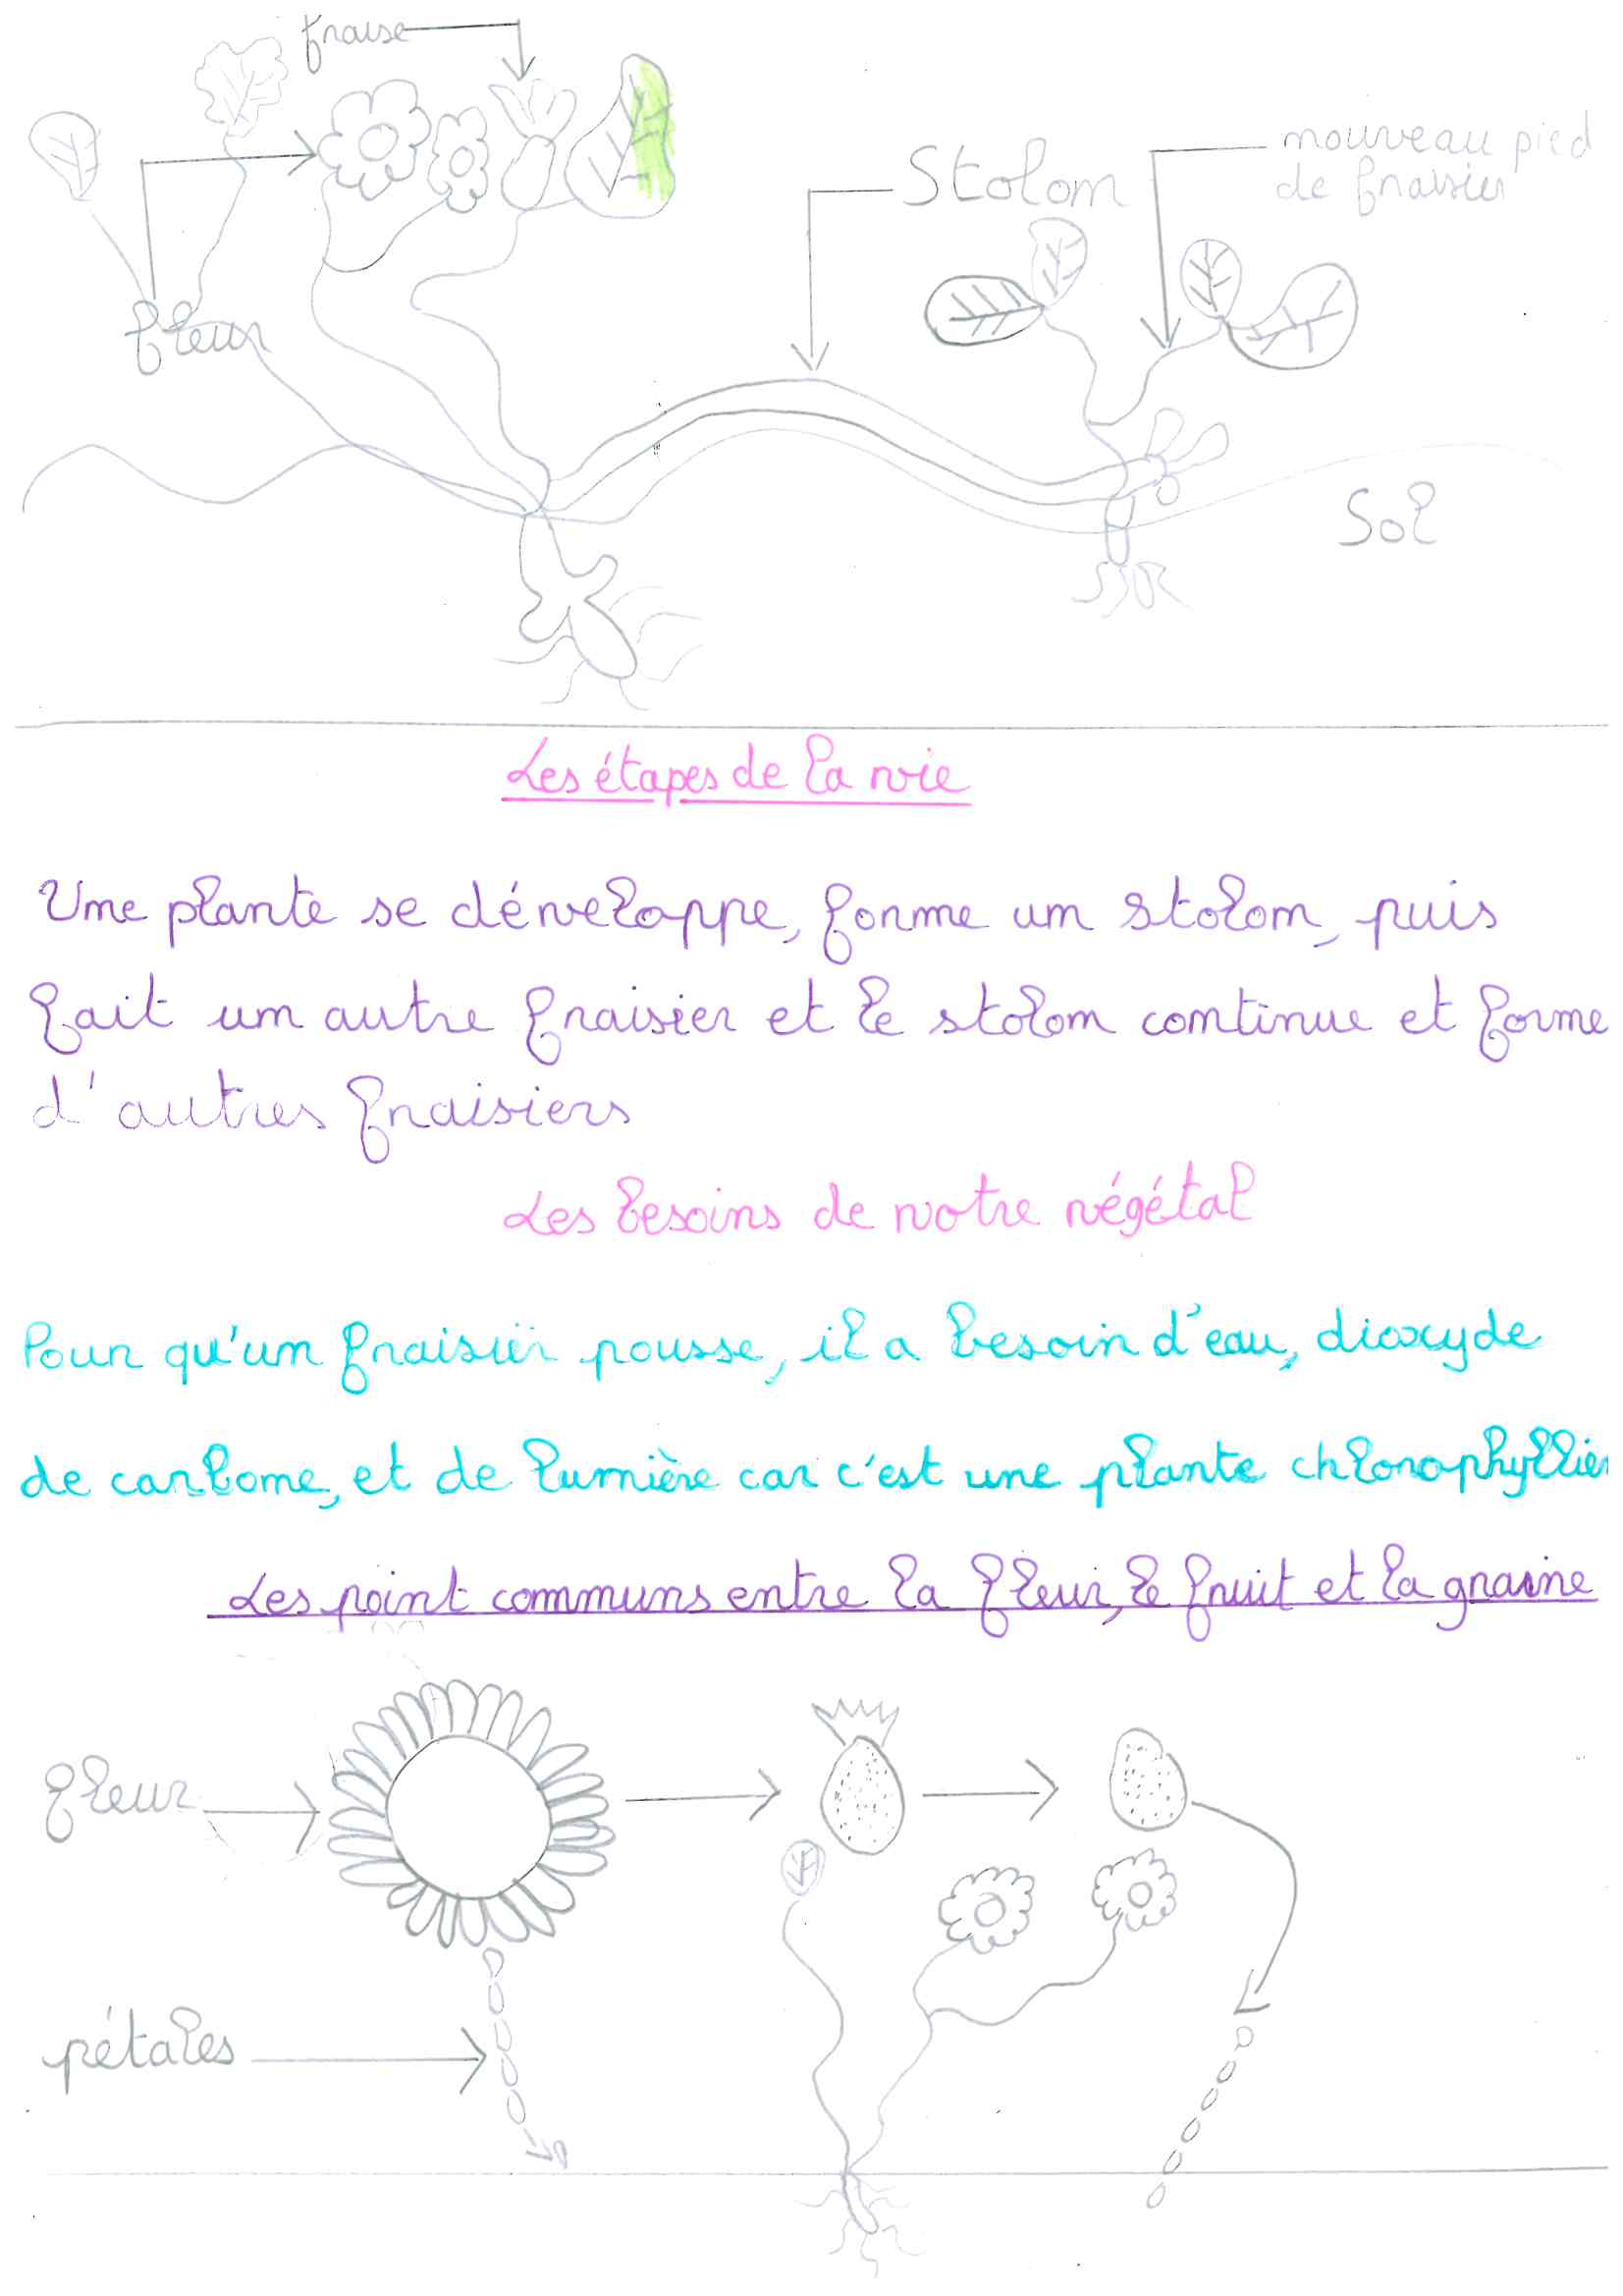 fraise
Stolon
nouveau pied
de fraisier
fleur
Sol
Les étapes de la vie
Une plante se développe, forme un stolon, puis
fait un autre fraisier et le stolon continue et forme
d'autres fraisiers
Les besoins de votre végétal
Pour qu'un fraisier pousse, il a besoin d'eau, dioxyde
de carbone, et de lumière car c'est une plante chlorophyllien
Les point communs entre la fleur, le fruit et la graine
fleur
pétales